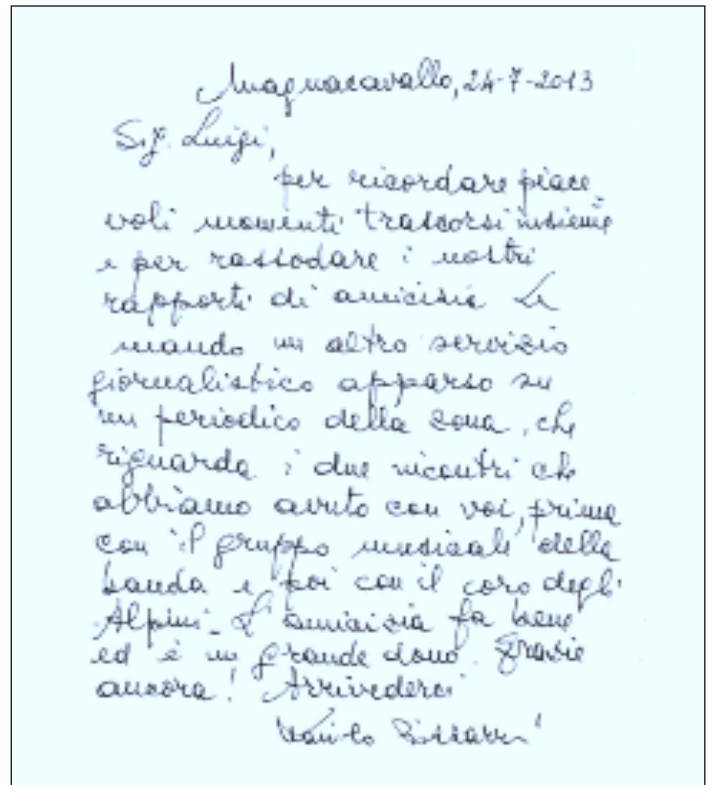 Magnacavallo, 24-7-2013
Sig. Luigi,
per ricordare piace
voli momenti trascorsi insieme
e per rassodare i nostri
rapporti di amicizia Le
mando un altro servizio
giornalistico apparso su
un periodico della zona, che
riguarda i due incontri che
abbiamo avuto con voi, prima
con il gruppo musicale della
banda e poi con il coro degli
Alpini. L'amicizia fa bene
ed è un grande dono. Grazie
ancora! Arrivederci